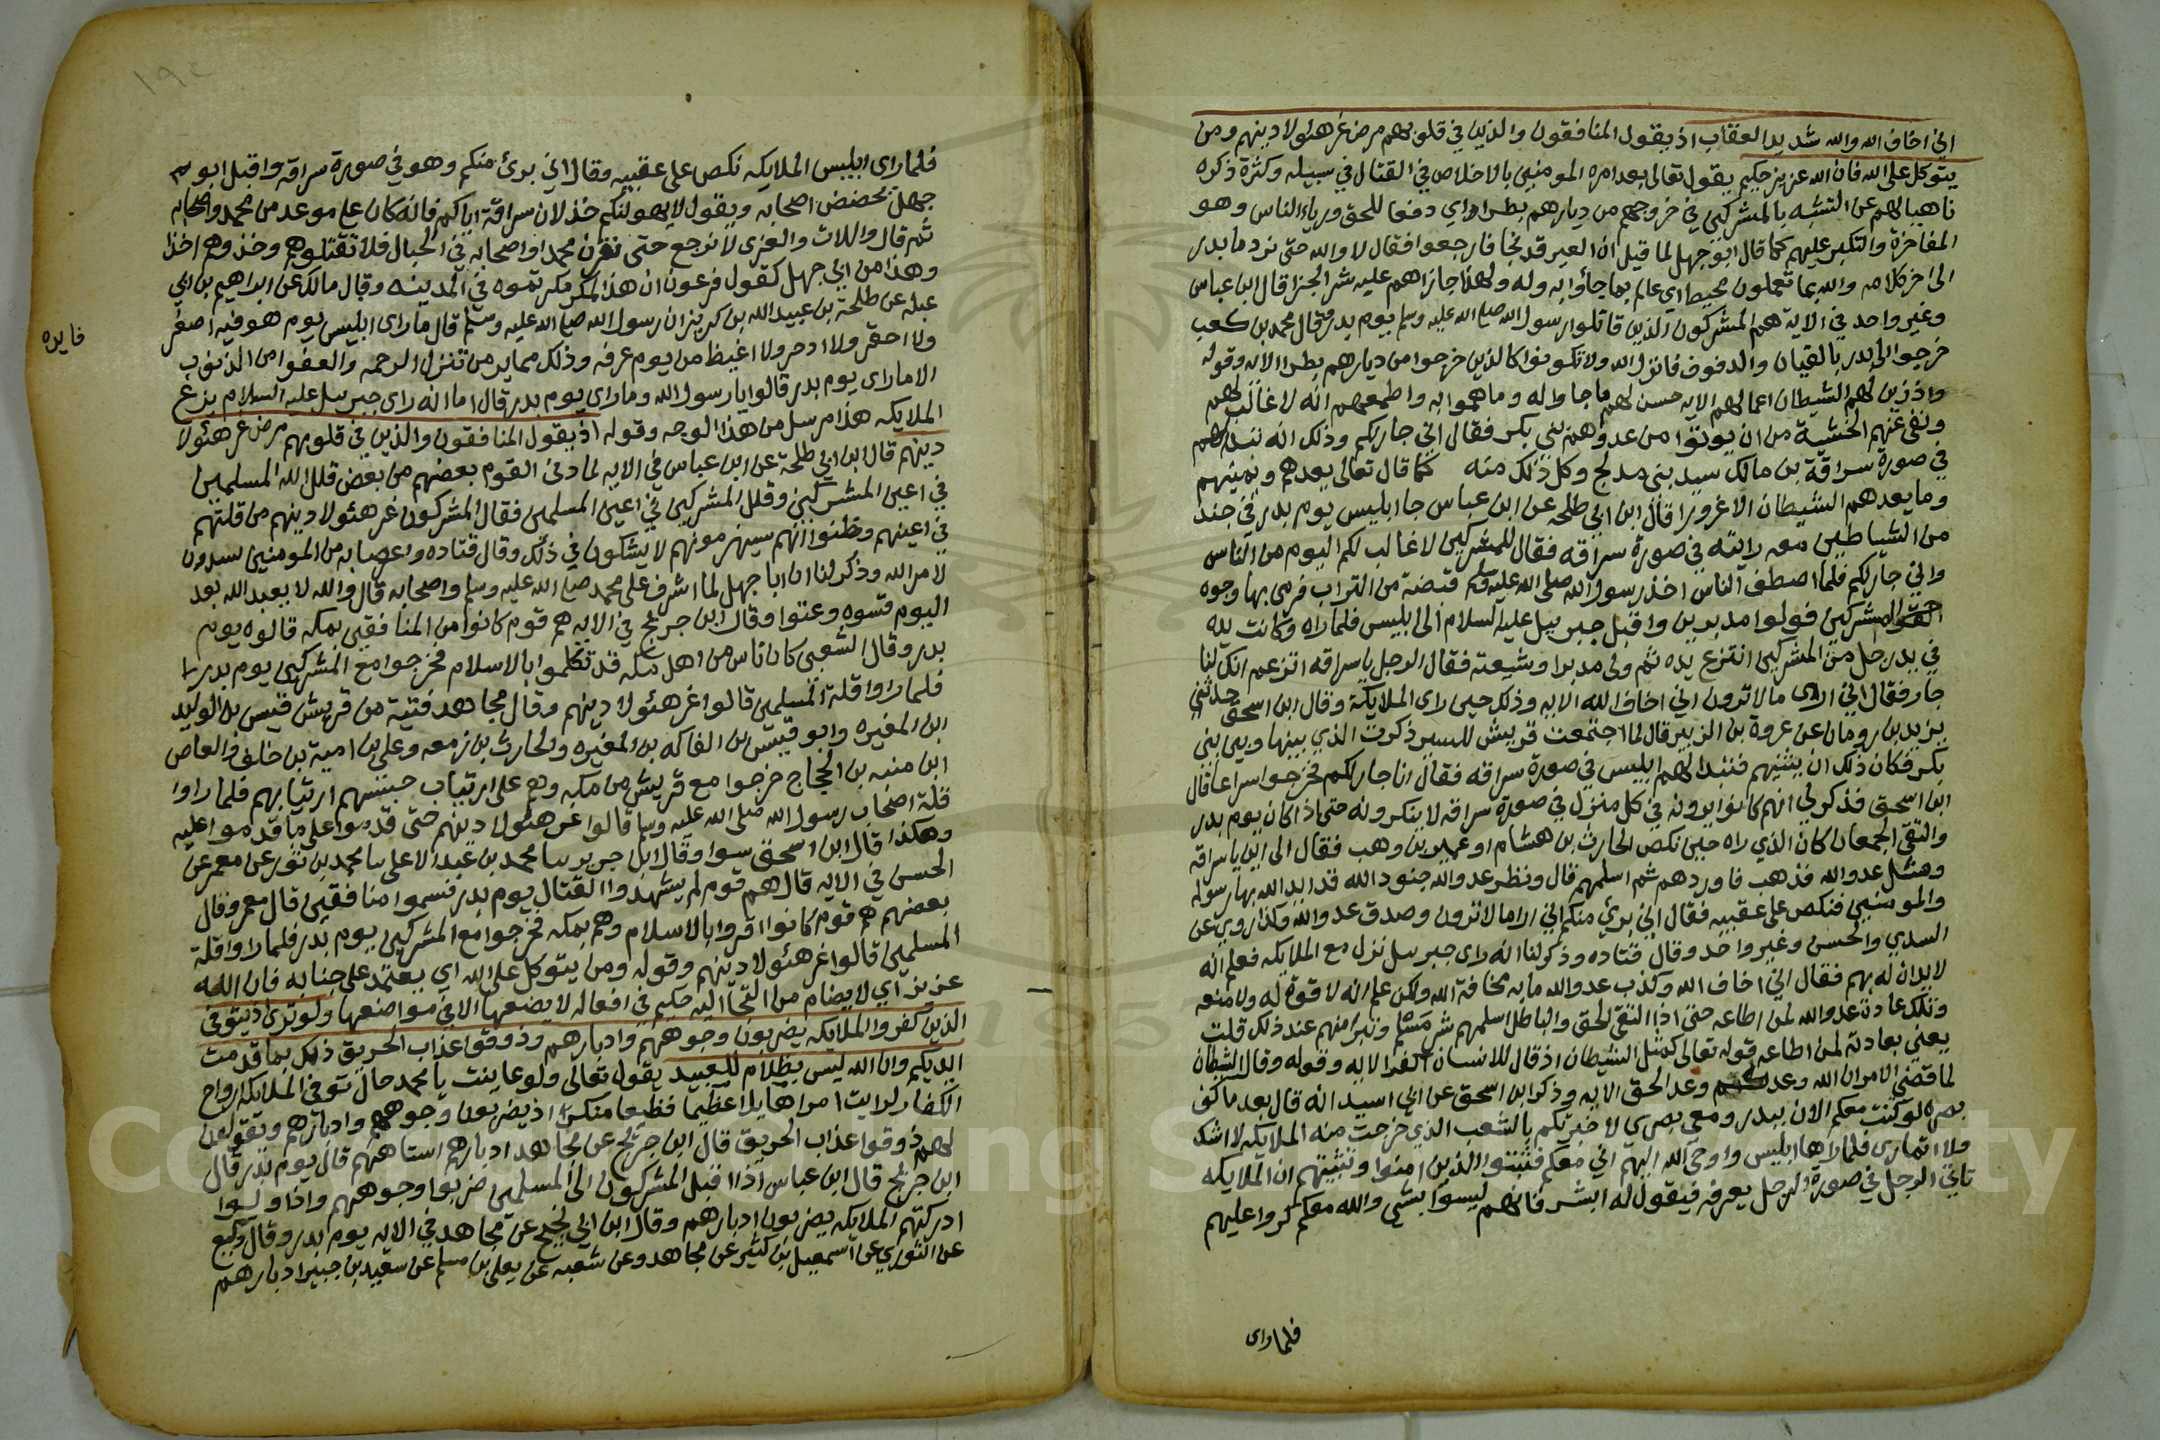 اني اخاف الله والله شديد العقاب اذ يقول المنافقون والذين في قلوبهم مرض غر هئولا دينهم ومن
يتوكل على الله فان الله عزيز حكيم يقول تعالى بعد امره المومنين بالاخلاص في القتال في سبيله وكثرة ذكره
ناهيا لهم عن التشبه بالمشركين في خروجهم من ديارهم بطرا اي دفعا للحق ورياء الناس وهو
المفاخرة والتكبر عليهم كما قال ابو جهل لما قيل ان العير قد نجا فارجعوا فقال لا والله حتى نرد ما بدر
الى اخر كلامه والله بما تعملون محيط اي عالم بما جاؤا به وله ولهذا جازاهم عليه شر الجزا قال ابن عباس
وغير واحد في الاية هم المشركون الذين قاتلوا رسول الله صلى الله عليه وسلم يوم بدر وقال محمد بن كعب
خرجوا الى بدر بالقيان والدفوف فانزل الله ولا تكونوا كالذين خرجوا من ديارهم بطرا الايه وقوله
واذ زين لهم الشيطان اعمالهم الايه حسن لهم ما جاوا له وما هموا به واطمعهم انه لا غالب لهم
ونفى عنهم الخشية من ان يوتوا من عدوهم بني بكر فقال اني جار لكم وذلك انه تبدا لهم
في صورة سراقة بن مالك سيد بني مدلج وكل ذلك منه كما قال تعالى يعدهم ويمنيهم
وما يعدهم الشيطان الا غرورا قال ابن ابي طلحه عن ابن عباس جا ابليس يوم بدر في جند
من الشياطين معه رايته في صورة سراقه فقال للمشركين لا غالب لكم اليوم من الناس
واني جار لكم فلما اصطف الناس اخذ رسول الله صلى الله عليه وسلم قبضة من التراب فرمى بها وجوه
المشركين فولوا مدبرين واقبل جبريل عليه السلام الى ابليس فلما راه وكانت يده
في يد رجل من المشركين انتزع يده ثم ولى مدبرا وشيعته فقال الرجل يا سراقه اتزعم انك لنا
جار فقال اني ارى مالا ترون اني اخاف الله الايه وذلك حين راى الملايكة وقال ابن اسحق حدثني
يزيد بن رومان عن عروة بن الزبير قال لما اجتمعت قريش للسير ذكرت الذي بينها وبين بني
بكر فكان ذلك ان يثنيهم فتبدا لهم ابليس في صورة سراقه فقال انا جار لكم فخرجوا سراعا قال
ابن اسحق فذكر لي انهم كانوا يرونه في كل منزل في صورة سراقه لا ينكرونه حتى اذا كان يوم بدر
والتقى الجمعان كان الذي راه حين نكص الحارث بن هشام او عمير بن وهب فقال الى اين يا سراقه
ومثل عدو الله فذهب فاوردهم ثم اسلمهم قال ونظر عدو الله جنود الله قد ايد الله بها رسوله
والمومنين فنكص على عقبيه فقال اني بري منكم اني ارا ما لا ترون وصدق عدو الله وكذا روي عن
السدي والحسن وغير واحد وقال قتاده وذكر لنا انه راى جبريل نزل مع الملايكه فعلم انه
لا يدان له بهم فقال اني اخاف الله وكذب عدو الله ما به مخافة الله ولكن علم انه لا قوة له ولا منعه
وتلك عادة عدو الله لمن اطاعه حتى اذا التقى الحق والباطل اسلمهم شر مسلم وتبرا منهم عند ذلك قلت
يعني بعادته لمن اطاعه قوله تعالى كمثل الشيطان اذ قال للانسان اكفر الايه وقوله وقال الشيطان
لما قضي الامر ان الله وعدكم وعد الحق الايه وذكر ابن اسحق عن ابي اسيد انه قال بعد ما كف
بصره لو كنت معكم الان ببدر ومعي بصرى لاخبرتكم بالشعب الذي خرجت منه الملايكه لا اشك
ولا اتمارى فلما راها ابليس واوحى الله اليهم اني معكم فثبتوا الذين امنوا وتثبيتهم ان الملايكه
تاتي الرجل في صورة الرجل يعرفه فيقول له ابشر فانهم ليسوا بشي والله معكم كروا عليهم
فلما راى
فلما راى ابليس الملايكه نكص على عقبيه وقال اني برئ منكم وهو في صورة سراقه واقبل ابو
جهل يحضض اصحابه ويقول لا يهولنكم خذلان سراقة اياكم فانه كان على موعد من محمد واصحابه
ثم قال واللات والعزى لا نرجع حتى نقرن محمدا واصحابه في الحبال فلا تقتلوهم وخذوهم اخذا
وهذا من ابي جهل كقول فرعون ان هذا لمكر مكرتموه في المدينه وقال مالك عن ابراهيم بن ابي
عبله عن طلحة بن عبيد الله بن كريز ان رسول الله صلى الله عليه وسلم قال ما راى ابليس يوم هو فيه اصغر
ولا احقر ولا ادحر ولا اغيظ من يوم عرفه وذلك مما ير من تنزل الرحمه والعفو من الذنوب
فايده
الا ما راى يوم بدر قالوا يا رسول الله وما راى يوم بدر قال اما انه راى جبريل عليه السلام يزع
الملايكه هذا مرسل من هذا الوجه وقوله اذ يقول المنافقون والذين في قلوبهم مرض غر هئولا
دينهم قال ابن ابي طلحة عن ابن عباس في الايه لما دنى القوم بعضهم من بعض قلل الله المسلمين
في اعين المشركين وقلل المشركين في اعين المسلمين فقال المشركون غر هئولا دينهم من قلتهم
في اعينهم وظنوا انهم سيهزمونهم لا يشكون في ذلك وقال قتاده واعصابه من المومنين تشددت
لامر الله وذكر لنا ان ابا جهل لما اشرف على محمد صلى الله عليه وسلم واصحابه قال والله لا يعبد الله بعد
اليوم قسوه وعتوا وقال ابن جريج في الايه هم قوم كانوا من المنافقين بمكه قالوه يوم
بدر وقال الشعبي كان ناس من اهل مكه قد تكلموا بالاسلام فخرجوا مع المشركين يوم بدر
فلما راوا قلة المسلمين قالوا غر هئولا دينهم وقال مجاهد فتية من قريش قيس بن الوليد
ابن المغيره وابو قيس بن الفاكه بن المغيره والحارث بن زمعه وعلى بن امية بن خلف والعاص
ابن منبه بن الحجاج خرجوا مع قريش من مكه وهم على ارتياب حبسهم ارتيابهم فلما راوا
قلة اصحاب رسول الله صلى الله عليه وسلم قالوا غر هئولا دينهم حتى قدموا على ما قدموا عليه
وهكذا قال ابن اسحق سوا وقال ابن جرير ثنا محمد بن عبد الاعلى ثنا محمد بن ثور عن معمر عن
الحسن في الايه قال هم قوم لم يشهدوا القتال يوم بدر فسموا منافقين قال معمر وقال
بعضهم هم قوم كانوا اقروا بالاسلام وهم بمكه فخرجوا مع المشركين يوم بدر فلما راوا قلة
المسلمين قالوا غر هئولا دينهم وقوله ومن يتوكل على الله اي يعتمد على جنابه فان الله
عزيز اي لا يضام من التجا اليه حكيم في افعاله لا يضعها الا في مواضعها ولو ترى اذ يتوفى
الذين كفروا الملايكه يضربون وجوههم وادبارهم وذوقوا عذاب الحريق ذلك بما قدمت
ايديكم وان الله ليس بظلام للعبيد يقول تعالى ولو عاينت يا محمد حال توفى الملايكه ارواح
الكفار لرايت امرا هايلا عظيما فظيعا منكرا اذ يضربون وجوههم وادبارهم وتقولون
لهم ذوقوا عذاب الحريق قال ابن جريج عن مجاهد ادبارهم استاههم قال يوم بدر قال
ابن جريج قال ابن عباس اذا اقبل المشركون الى المسلمين ضربوا وجوههم واذا ولوا
ادركتهم الملايكه يضربون ادبارهم وقال ابن ابي نجيح عن مجاهد في الايه يوم بدر وقال وكيع
عن الثوري عن اسمعيل بن كثير عن مجاهد وعن شعبه عن يعلى بن مسلم عن سعيد بن جبير ادبارهم